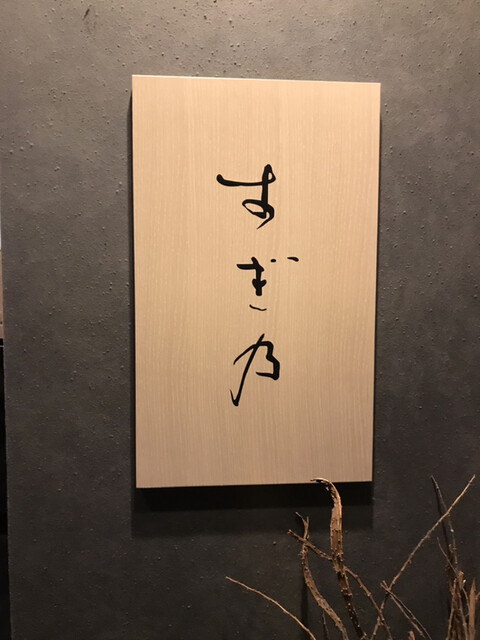 すぎ乃